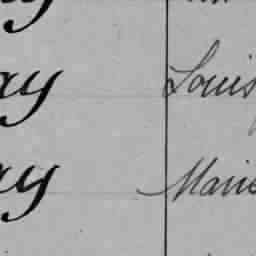 ay Louis
ay Marie